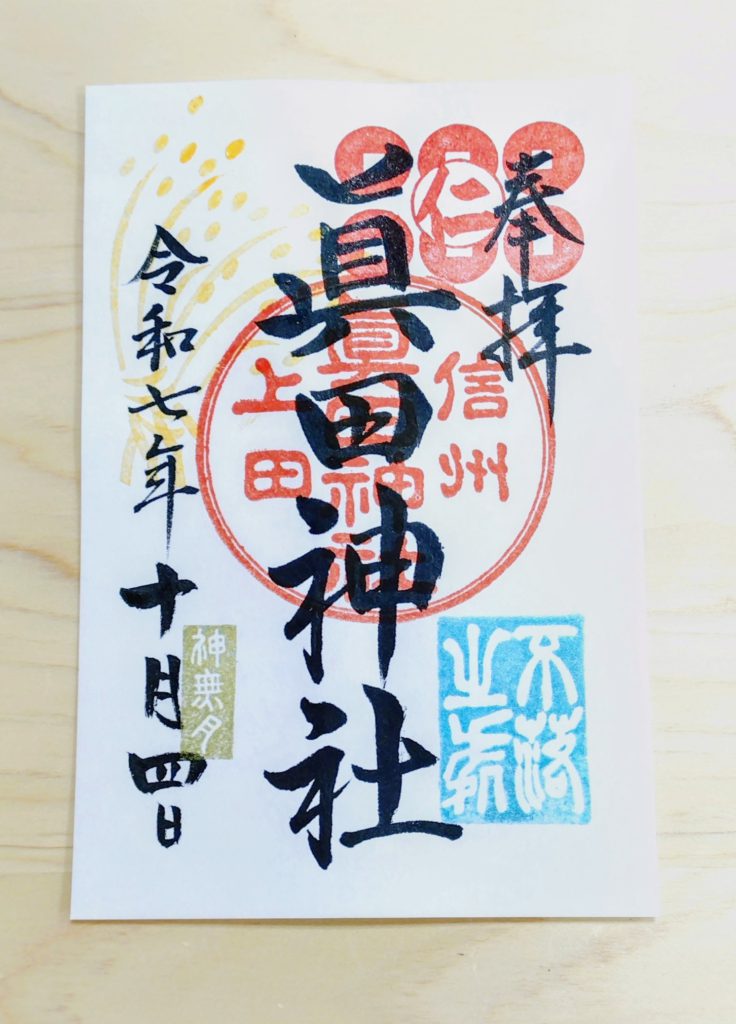 奉拝
仁
眞田神社
信州
眞田神社
上田
不落
之
令和七年十月四日
神無月